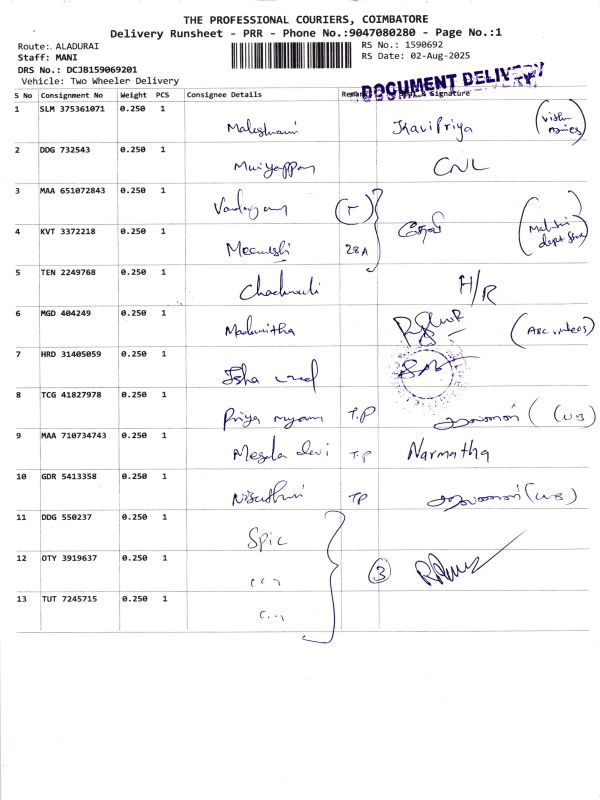 THE PROFESSIONAL COURIERS, COIMBATORE
Delivery Runsheet - PRR - Phone No.:9047080280 - Page No.:1
Route: ALADURAI
RS No.: 1590692
Staff: MANI
RS Date: 02-Aug-2025
DRS No.: DCJB159069201
Vehicle: Two Wheeler Delivery
DOCUMENT DELIVERY
S No Consignment No Weight PCS Consignee Details Remarks & Signature
1 SLM 375361071 0.250 1 KaviPriya
2 DDG 732543 0.250 1 Muiyappan CNL
3 MAA 651072843 0.250 1 (T)
4 KVT 3372218 0.250 1 Meenakshi 28A
5 TEN 2249768 0.250 1 H/R
6 MGD 404249 0.250 1 Madumitha
7 HRD 31405059 0.250 1 Isha
8 TCG 41827978 0.250 1 Priya T.P (WB)
9 MAA 710734743 0.250 1 Megala devi T.P Narmatha
10 GDR 5413358 0.250 1 TP (WB)
11 DDG 550237 0.250 1 Spic
12 OTY 3919637 0.250 1 3
13 TUT 7245715 0.250 1